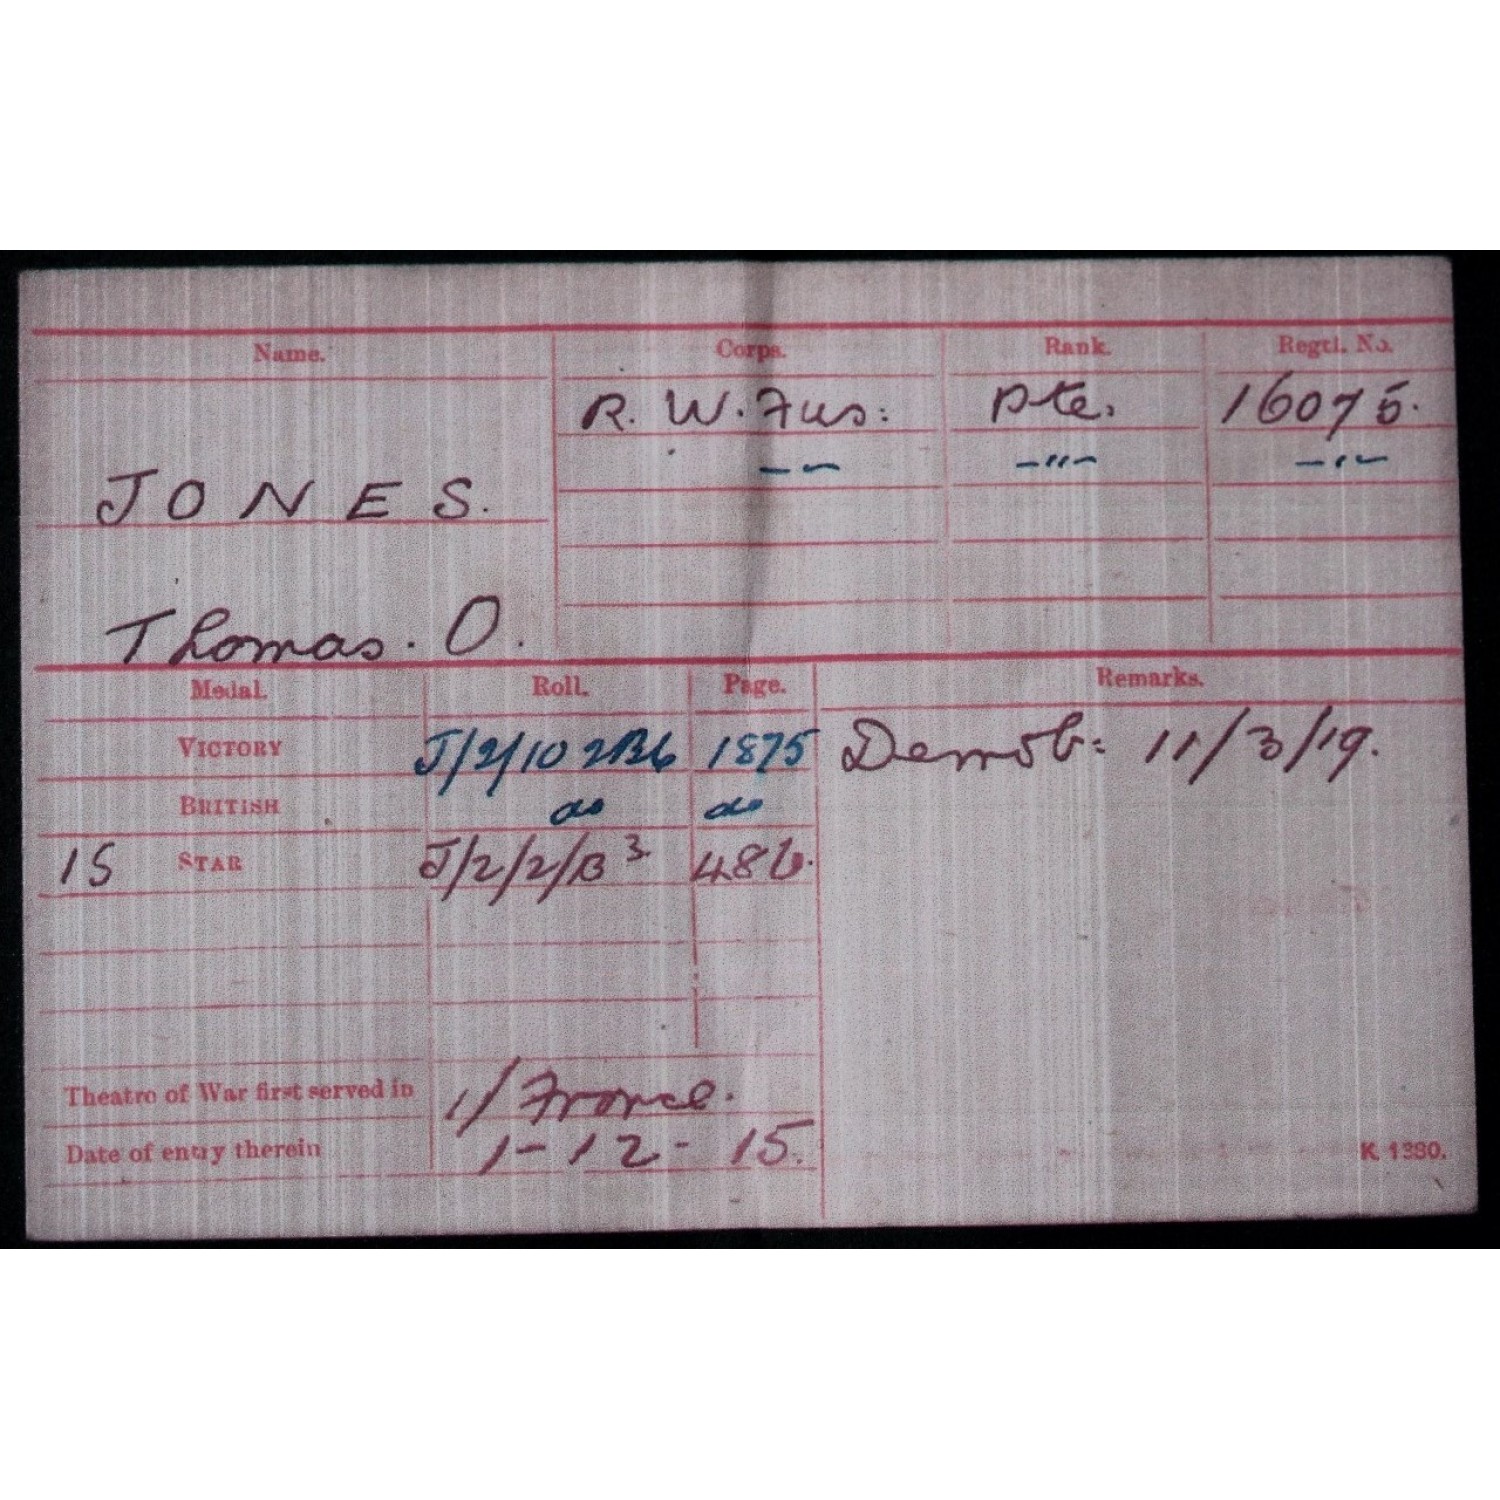 Name. Corps. Rank. Regtl. No.
R. W. Fus: Pte. 16075.
— — —"— —"—
JONES.
Thomas. O.
Medal. Roll. Page. Remarks.
VICTORY J/2/102B6 1875 Demob: 11/3/19.
BRITISH do do
15 STAR J/2/2/B3 486.
Theatre of War first served in 1/ France.
Date of entry therein 1-12-15.
K. 1380.